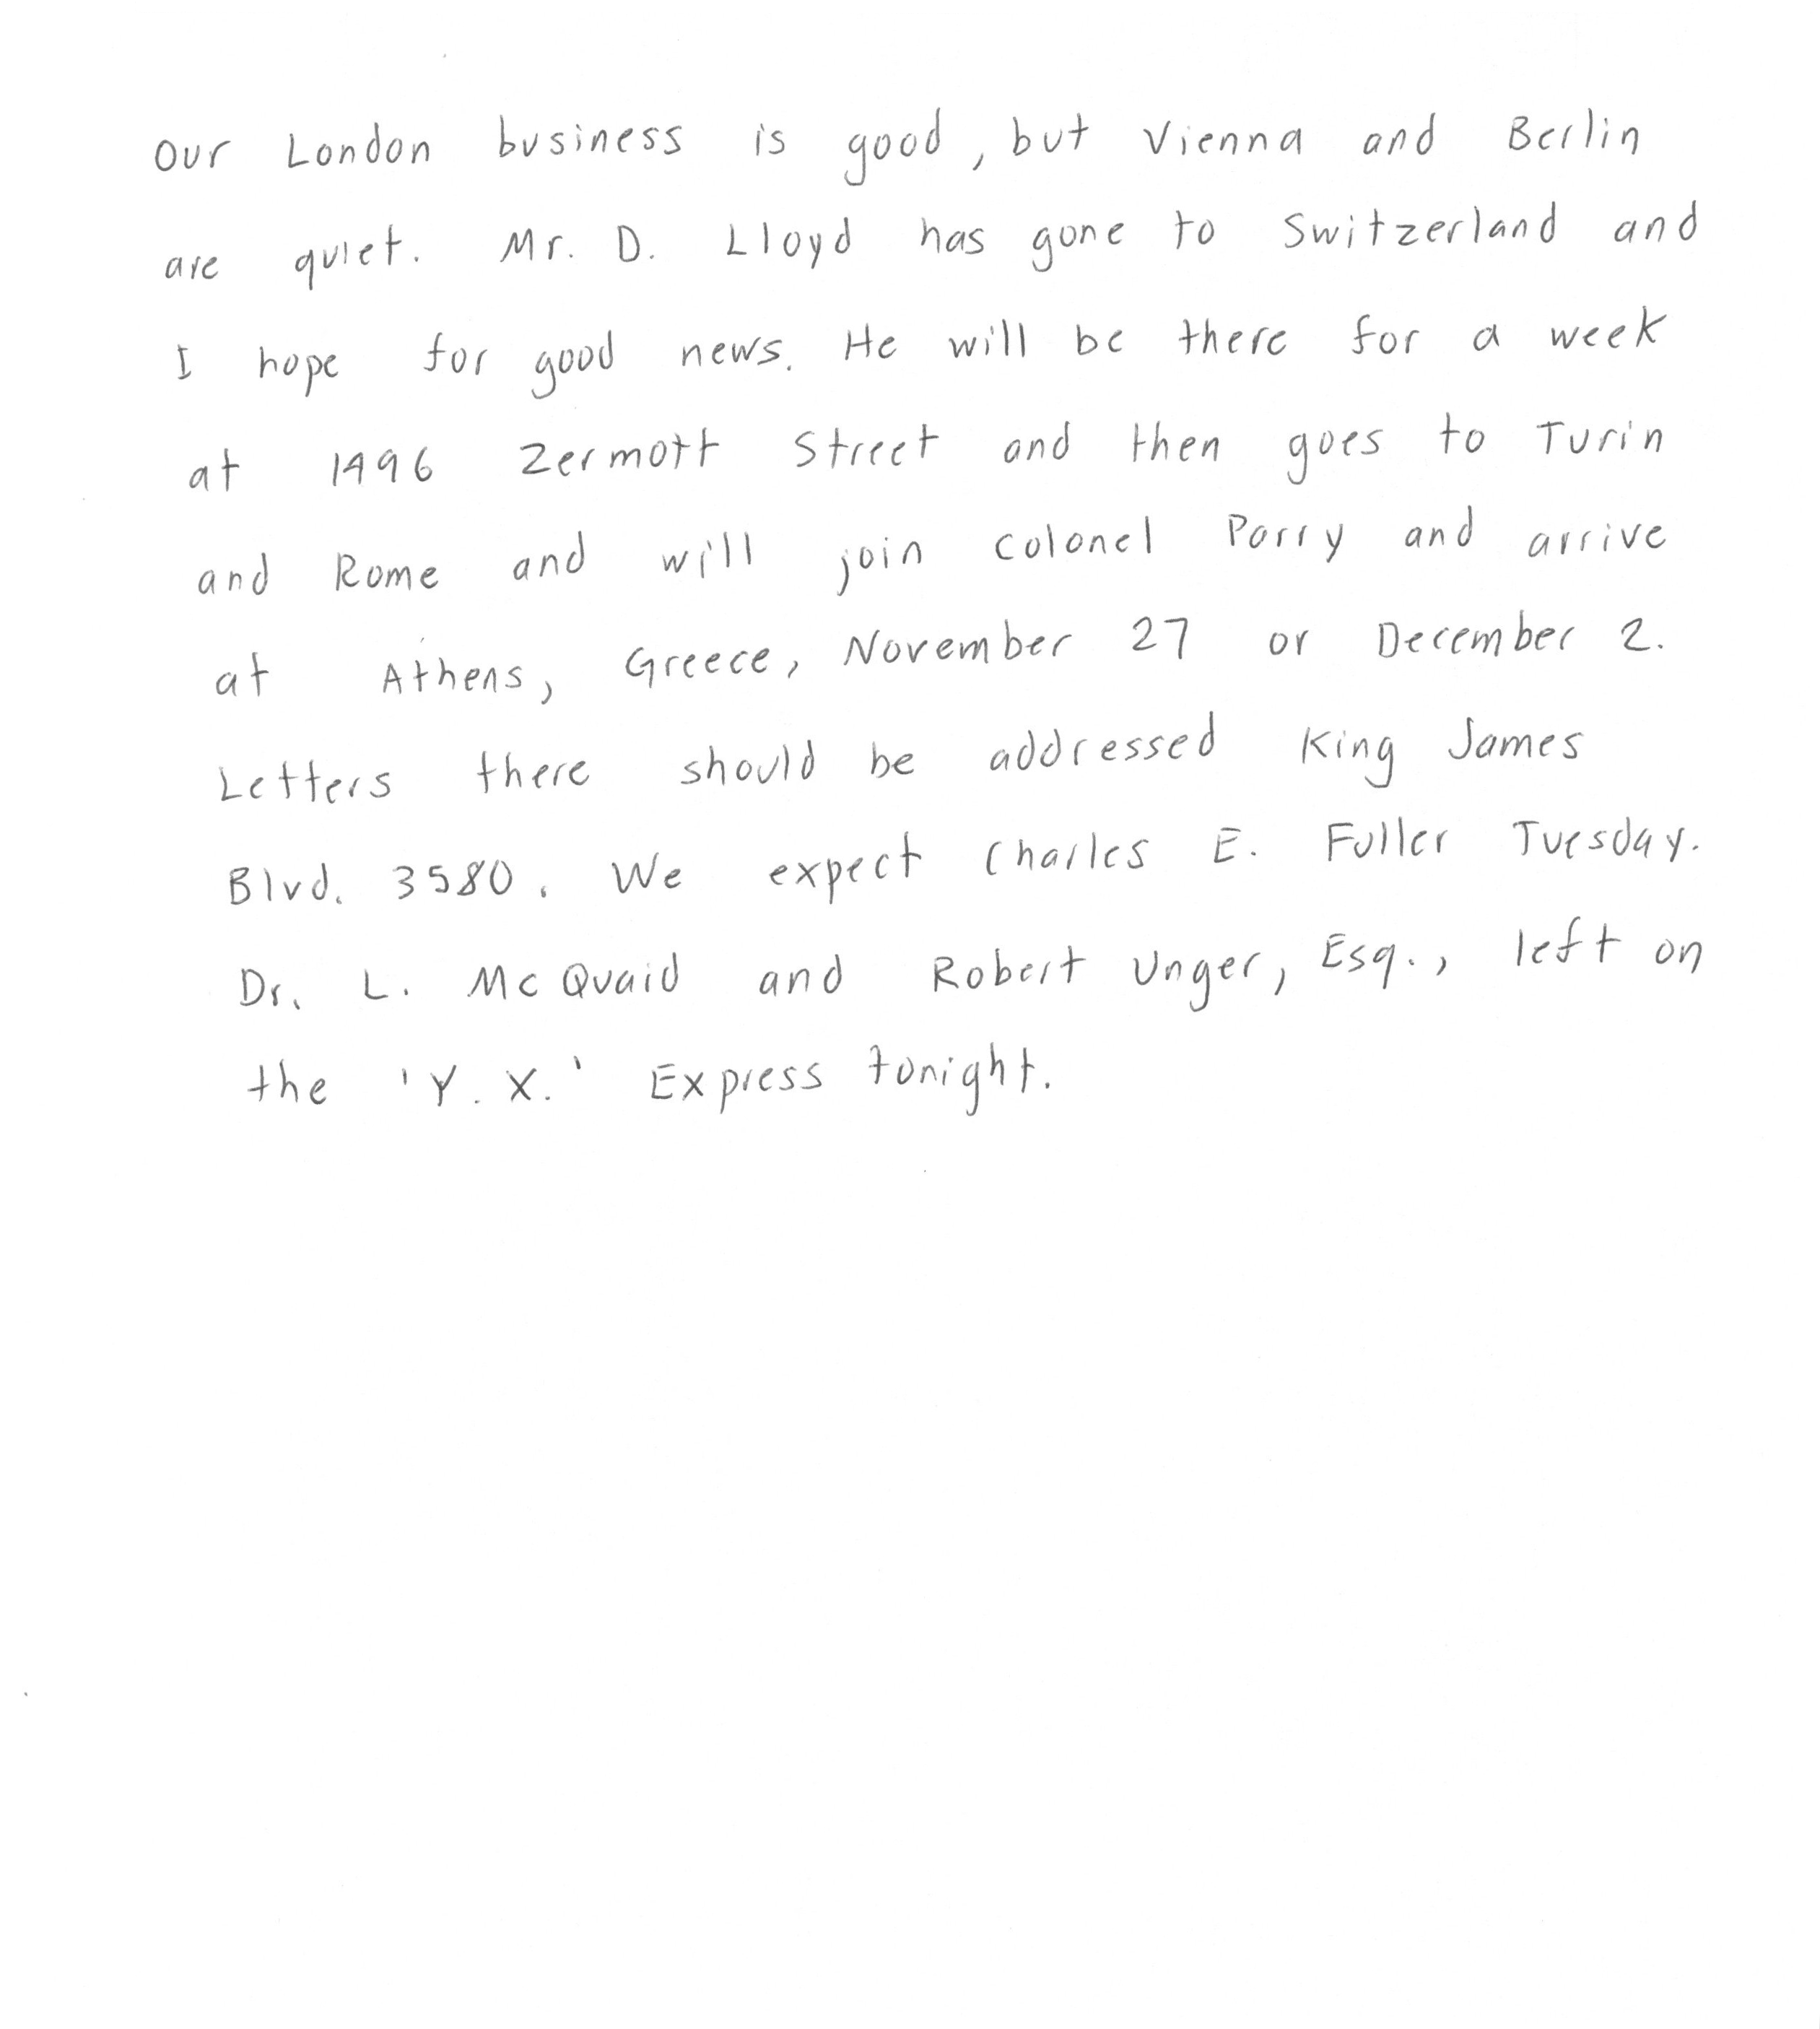 Our London business is good, but Vienna and Berlin
are quiet. Mr. D. Lloyd has gone to Switzerland and
I hope for good news. He will be there for a week
at 1496 Zermott Street and then goes to Turin
and Rome and will join Colonel Parry and arrive
at Athens, Greece, November 27 or December 2.
Letters there should be addressed King James
Blvd. 3580. We expect Charles E. Fuller Tuesday.
Dr. L. McQuaid and Robert Unger, Esq., left on
the 'Y. X.' Express tonight.